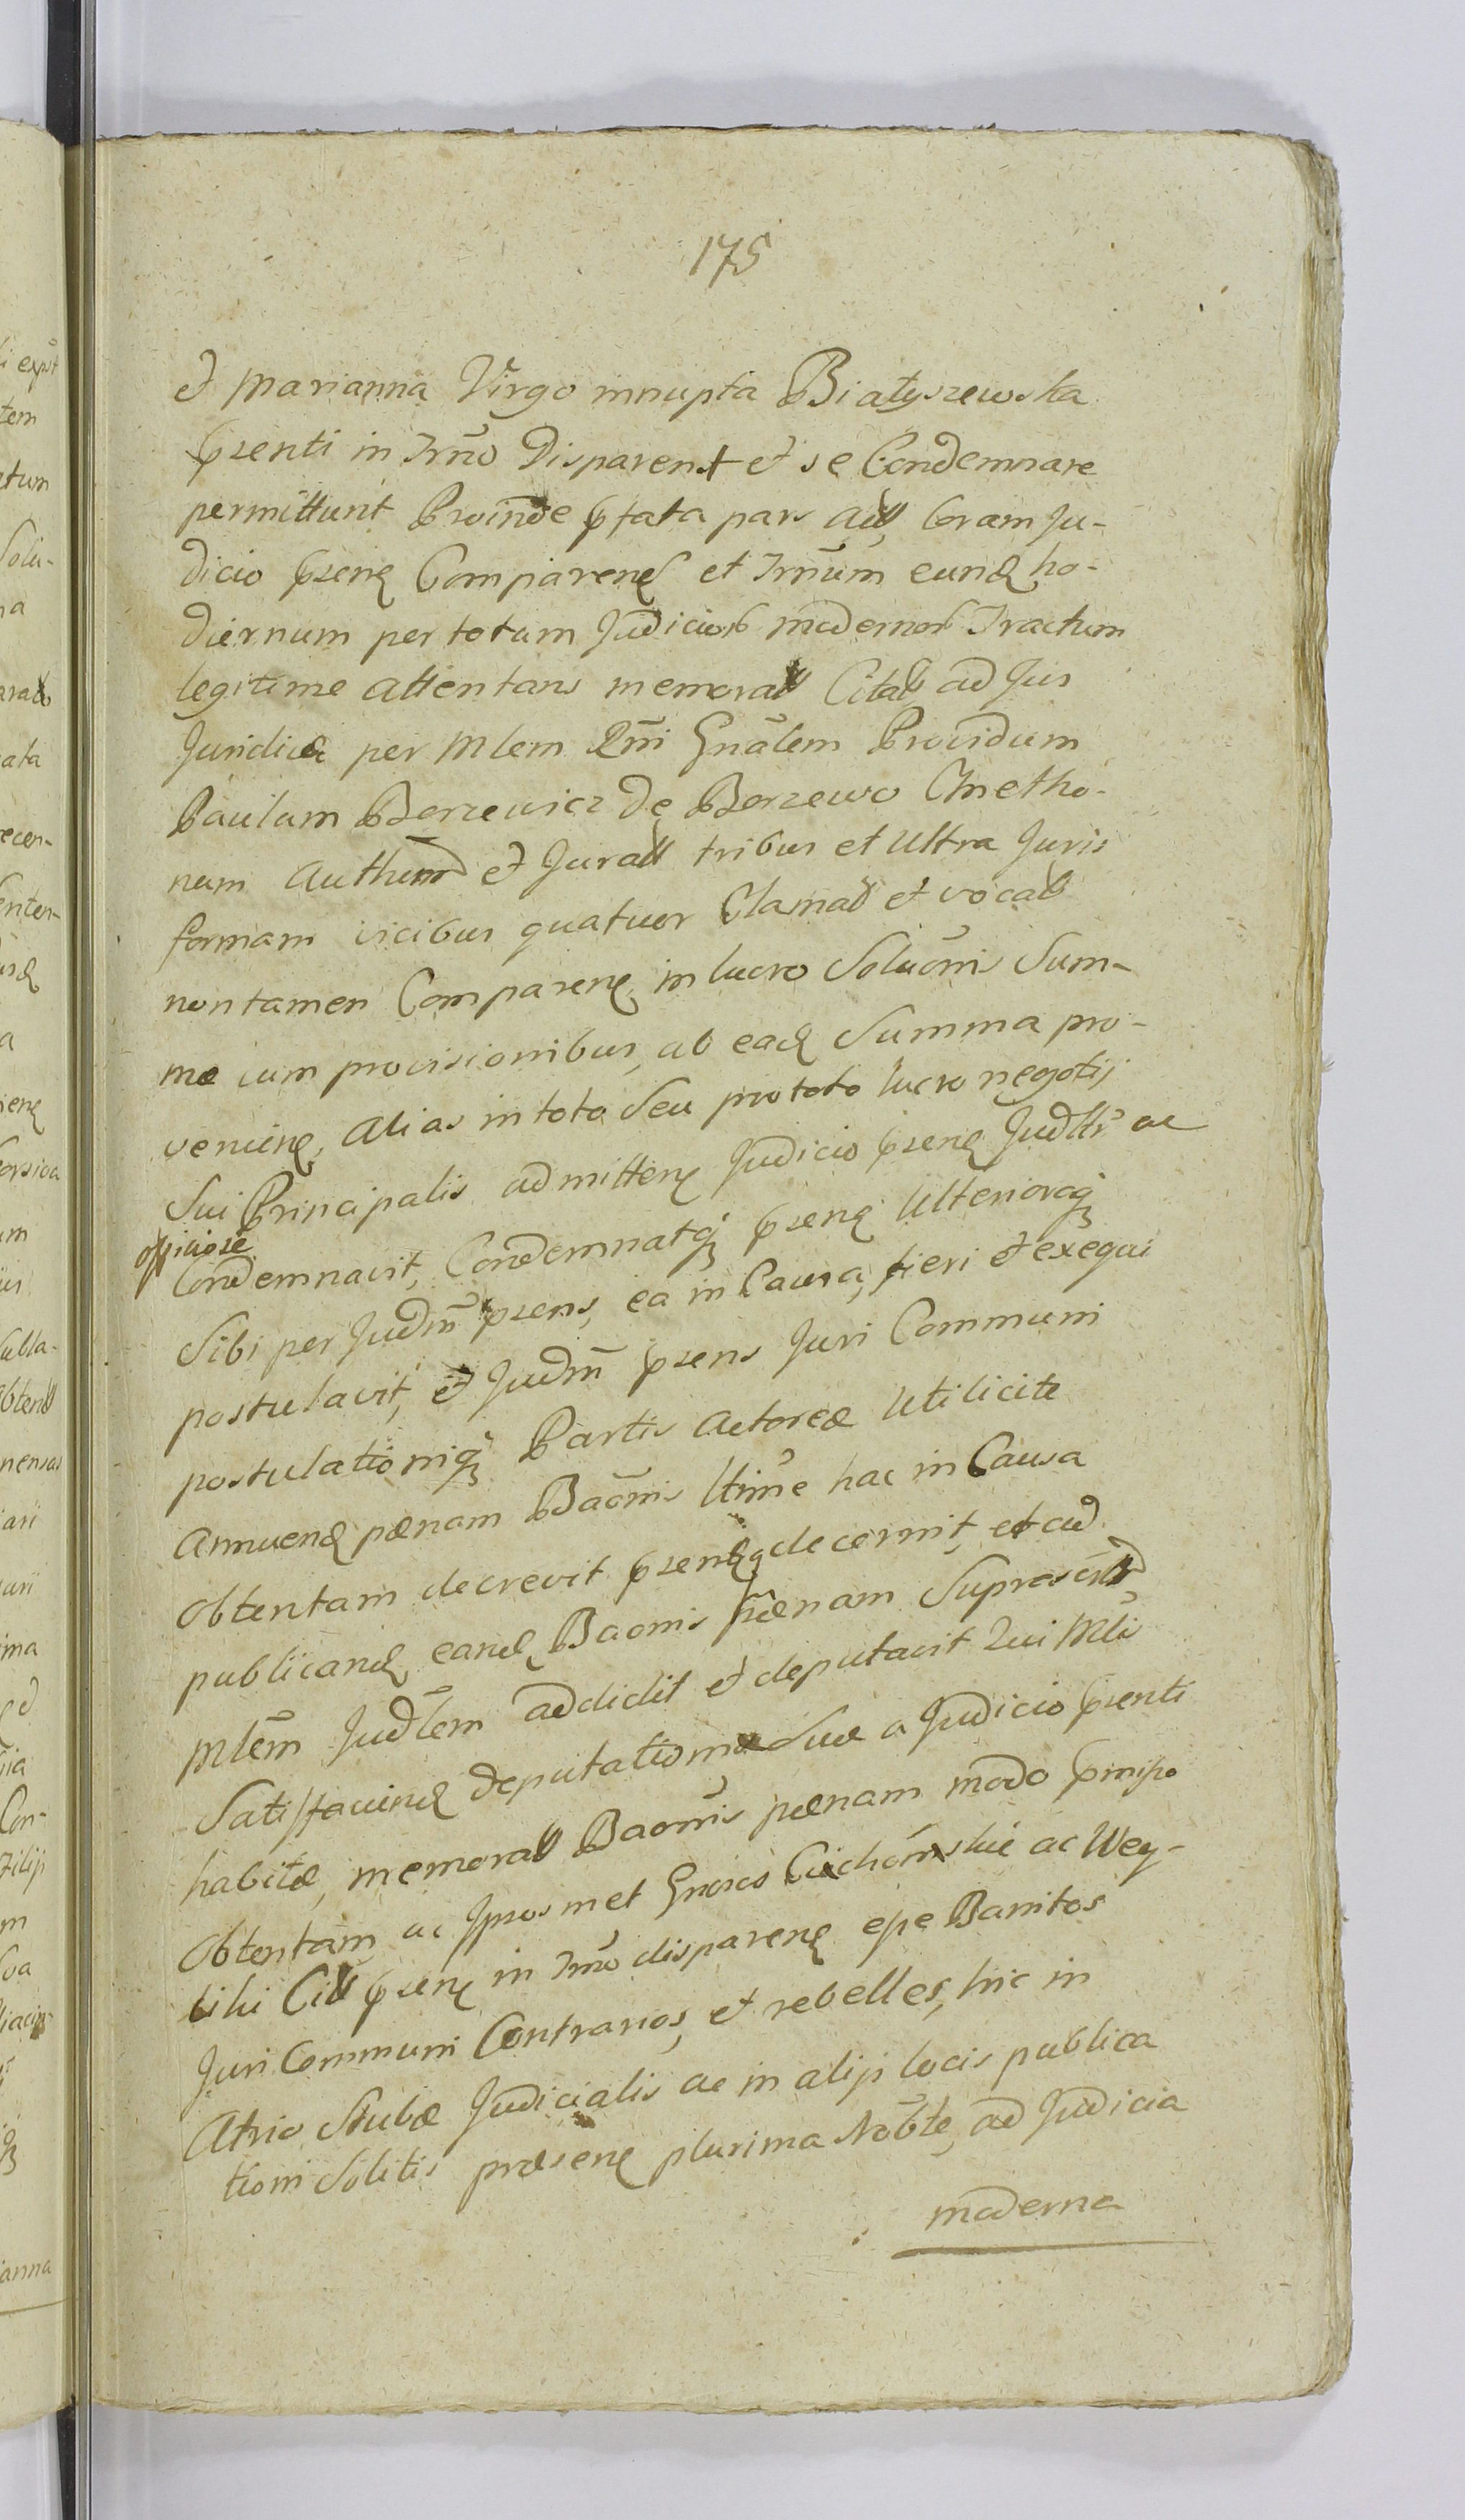 175
et Marianna Virgo innupta Białyszewska
pṣenti in Trño Disparent et se Condemnare
permittunt Proinde pfata pars Act, Coram Ju-
dicio pseñ Comparenˢ et Trñum eund ho-
diernum per totum Judiciorˢ modernorˢ Tractum
legitime attentans memorat Citatˢ ad Jus
Juridice per Mlem Rñi Gnãlem Providum
Paulum Borzewicz de Borzewo Cmetho-
nem Authentˢ et Jurat tribus et Ultra Juris
formam vicibus quatuor Clamatˢ et vocatˢ
non tamen Comparen in lucro Soluõnis Sum-
mæ cum provisionibus, ab ead Summa pro-
venien, alias in toto Seu pro toto lucro negotij
Sui Principalis admitten Judicio psen Judlłr ac
officiose
Condemnavit, Condemnatq psen Ulterioraq
Sibi per Judm̃ psens, ea in Causa, fieri et exequi
postulavit, et Judm̃ psens Juri Communi
postulationiq Partis Actoreæ Utilicite
Annuend pænam Baõnis ltime hac in Causa
Obtentam decrevit psentiq decernit, et ad
publicand, eand Baonis pænam Suprascrt
Mlem̃ Judlem addidit et deputavit Qui Mlis
Satisfaciend deputationi Suæ a Judicio psenti
habitæ, memorat Baonis pænam modo pmipo
Obtentam, ac Ipsosmet Gnosos Cichomskie ac Wey-
lihi Citt psen in Trño disparen eẽe Banitos
Juri Communi Contrarios, et rebelles, hic in
Atrio Stubæ Judicialis ac in alijs locis publica
tioni Solitis præsen plurima Nobte, ad Judicia
moderna